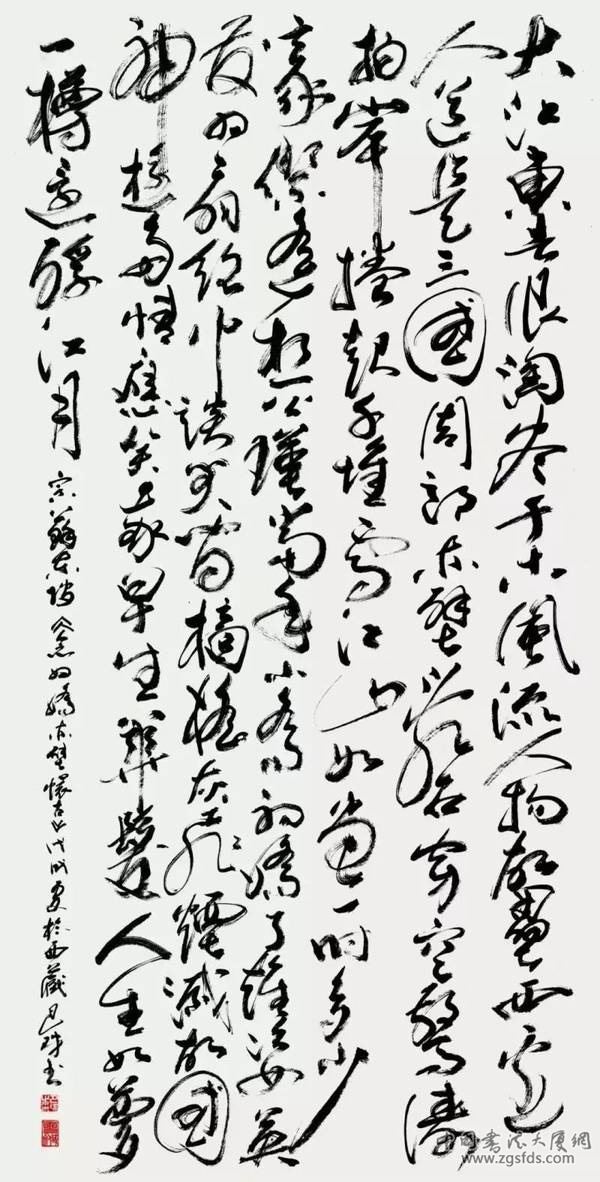 大江東去浪淘盡千古風流人物故壘西邊
人道是三國周郎赤壁亂石穿空驚濤
拍岸捲起千堆雪江山如畫一時多少
豪傑遙想公瑾當年小喬初嫁了雄姿英
發羽扇綸巾談笑間檣櫓灰飛煙滅故國
神遊多情應笑我早生華髮人生如夢
一樽還酹江月
宋蘇東坡念奴嬌赤壁懷古戊戌夏於西藏巴珠書
中国書法大廈網
www.zgsfds.com